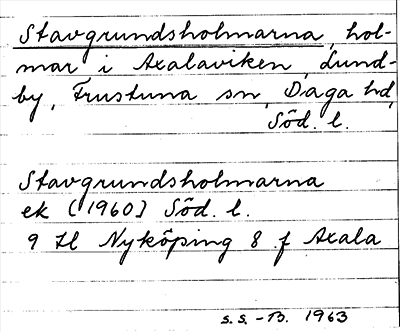 Stavgrundsholmarna, hol-
mar i Axalaviken, Lund-
by, Frustuna sn, Daga hd,
Söd. l.
Stavgrundsholmarna
ek (1960) Söd. l.
9 H Nyköping 8 f Axala
S.S.-B. 1963